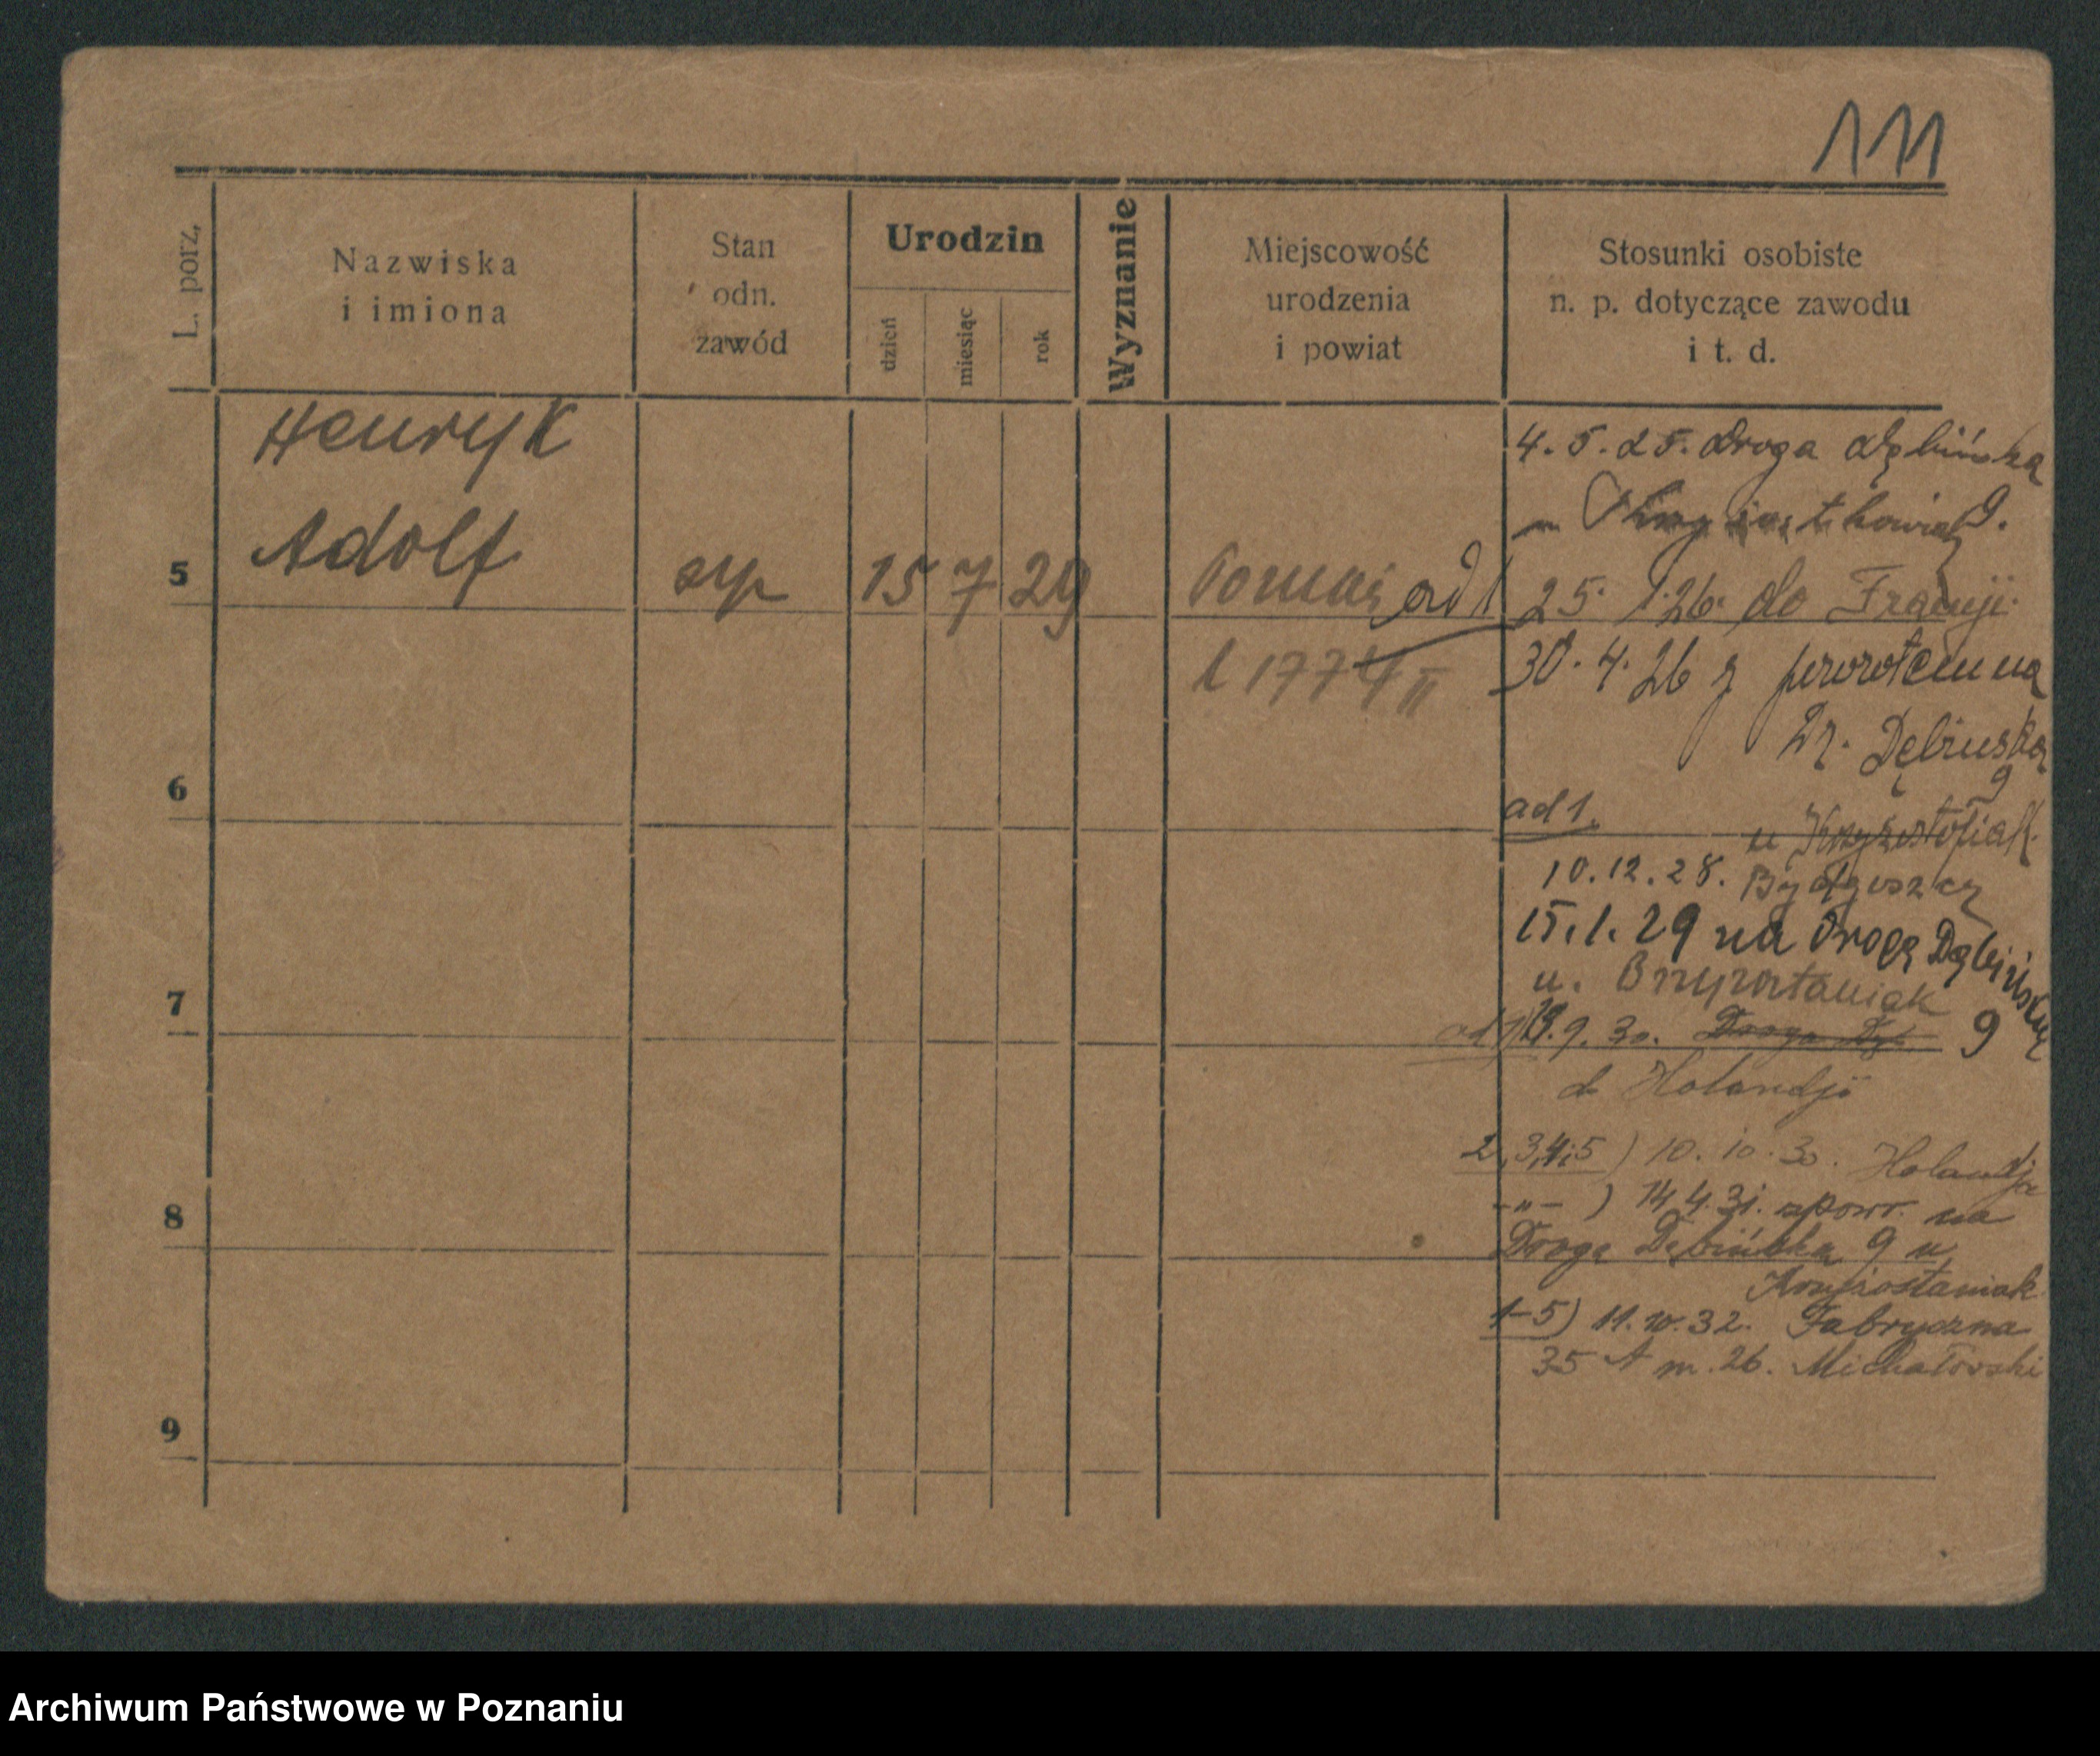 111
L. porz.
Nazwiska
i imiona
Stan
odn.
zawód
Urodzin
dzień
miesiąc
rok
Wyznanie
Miejscowość
urodzenia
i powiat
Stosunki osobiste
n. p. dotyczące zawodu
i t. d.
Henryk
Adolf
5
syn
15 7 29
Poznań
l 1774 II
6
7
8
9
4. 5. 25. Droga Dębińska
9.
ad 1 25. 1. 26. do Francji
30. 4. 26 z powrotem na
Dr. Dębińską
9
ad 1.
u Krzyżostofiak
10. 12. 28. Bydgoszcz
15. 1. 29 na Drogę Dębińską
u. 9
9. 30. Droga Dę
do Holandji
2,3,4,5) 10. 10. 30. Holandja
-„- ) 14. 4. 31. zpowr. na
Droga Dębińska 9 u
Krzyżostaniak
1-5) 11. 10. 32. Fabryczna
35 A m. 26. Michałowski
Archiwum Państwowe w Poznaniu